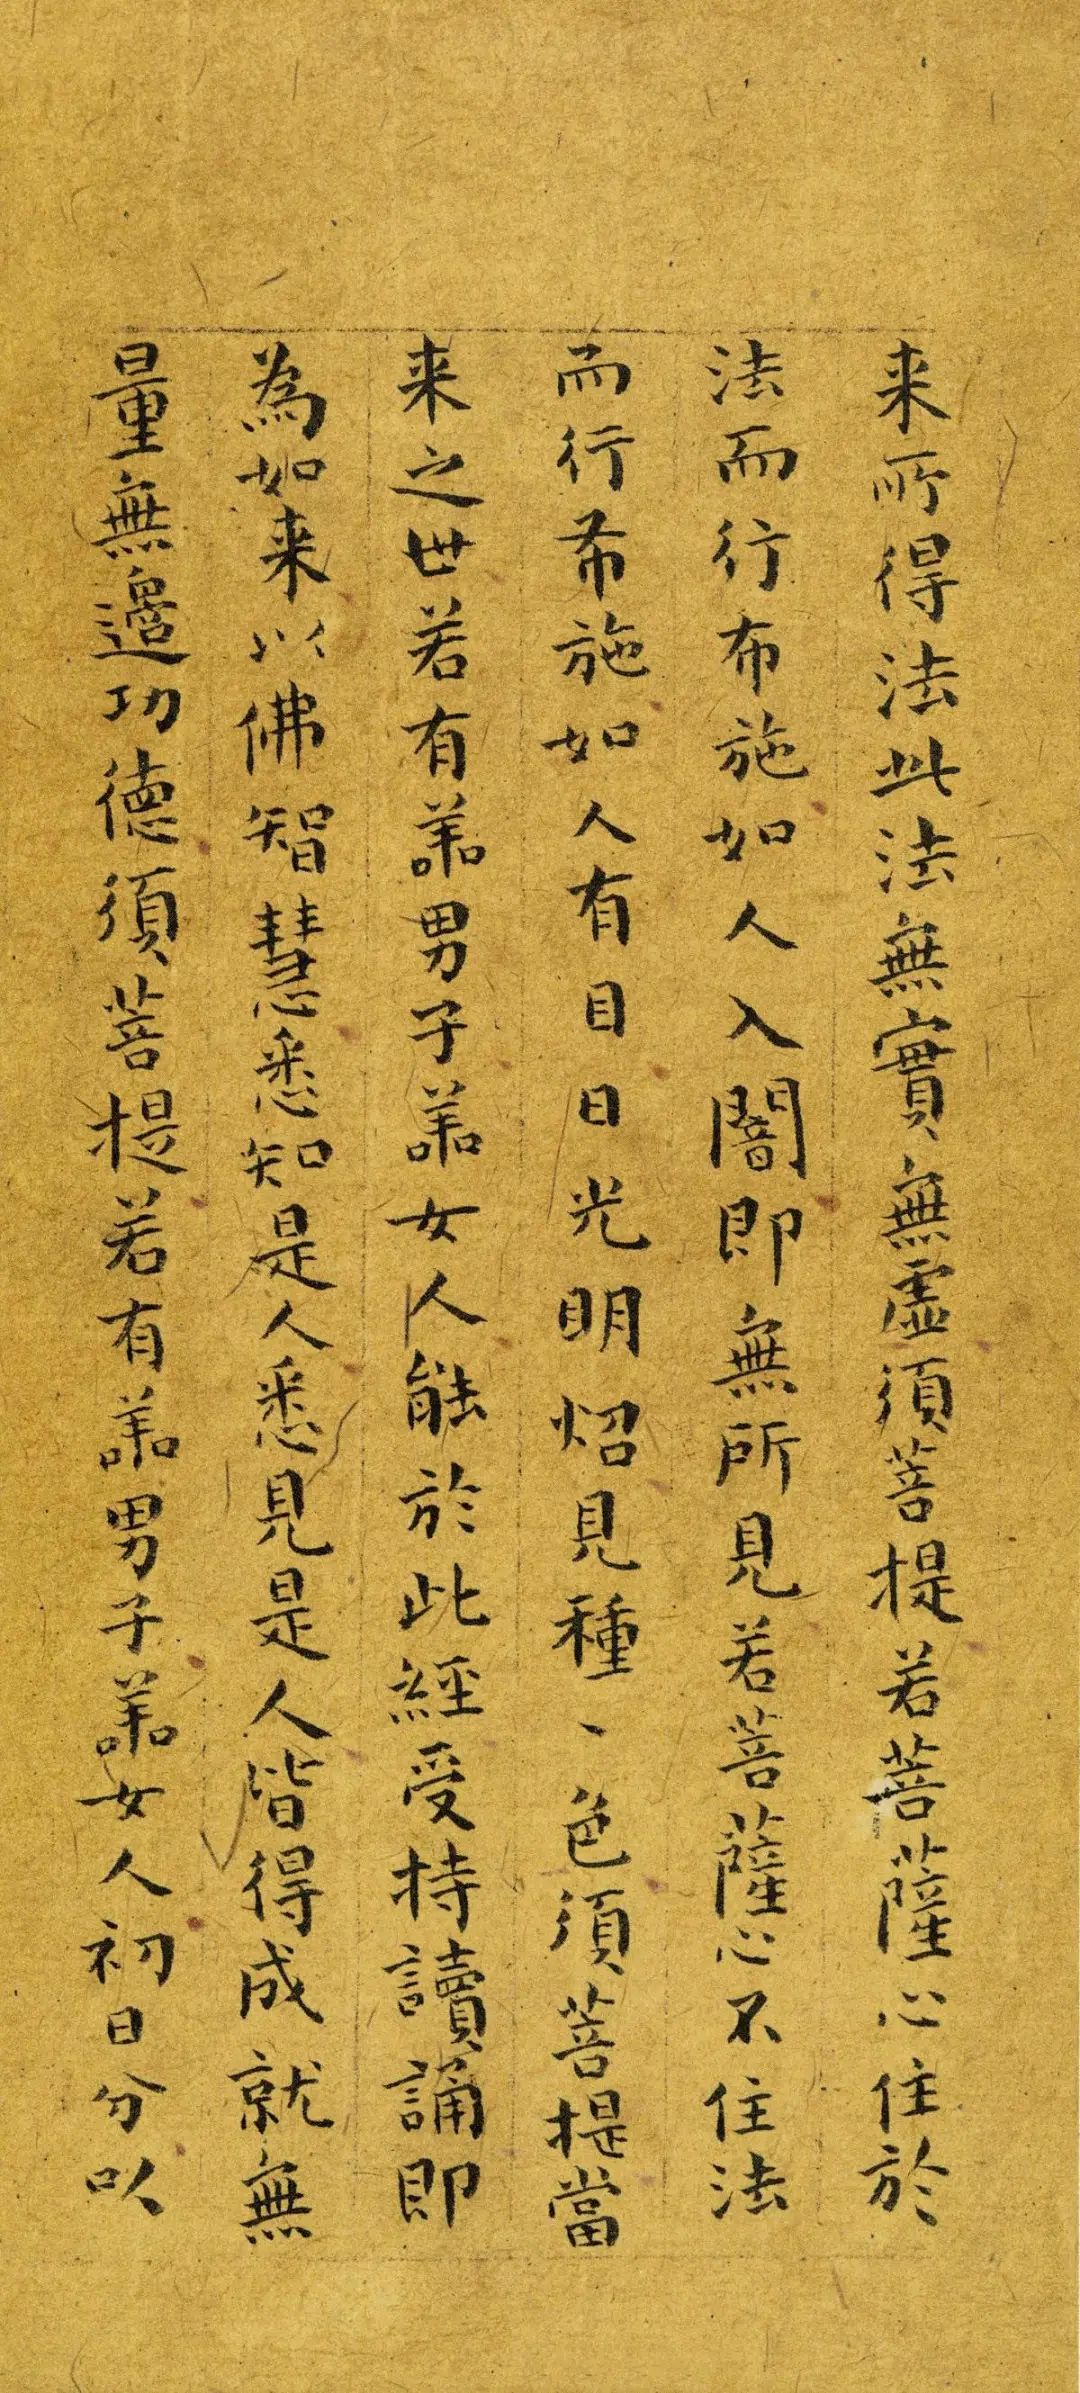 来所得法此法無實無虛須菩提若菩薩心住於
法而行布施如人入闇即無所見若菩薩心不住法
而行布施如人有目日光明炤見種々色須菩提當
来之世若有善男子善女人能於此經受持讀誦即
為如来以佛智慧悉知是人悉見是人皆得成就無
量無邊功德須菩提若有善男子善女人初日分以